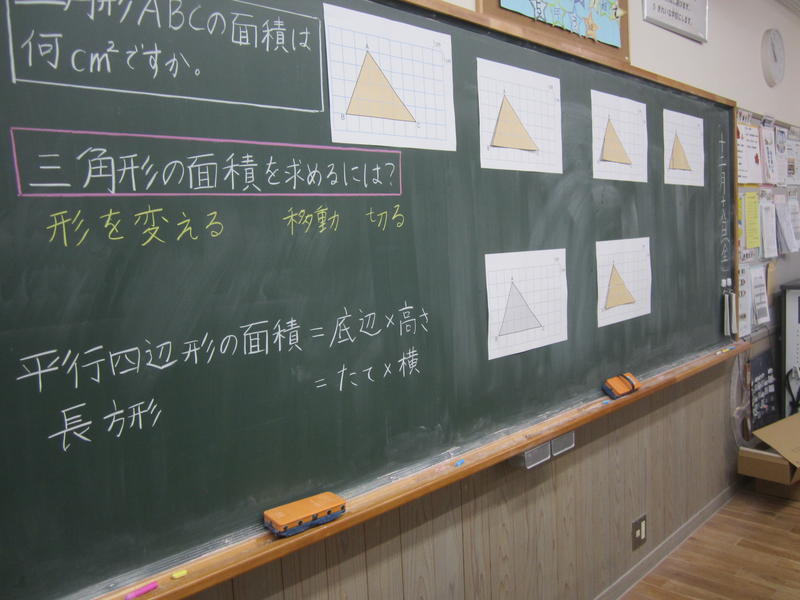 三角形ABCの面積は
何cm²ですか。
三角形の面積を求めるには?
形を変える 移動 切る
平行四辺形の面積=底辺×高さ
長方形 =たて×横
A
B
C